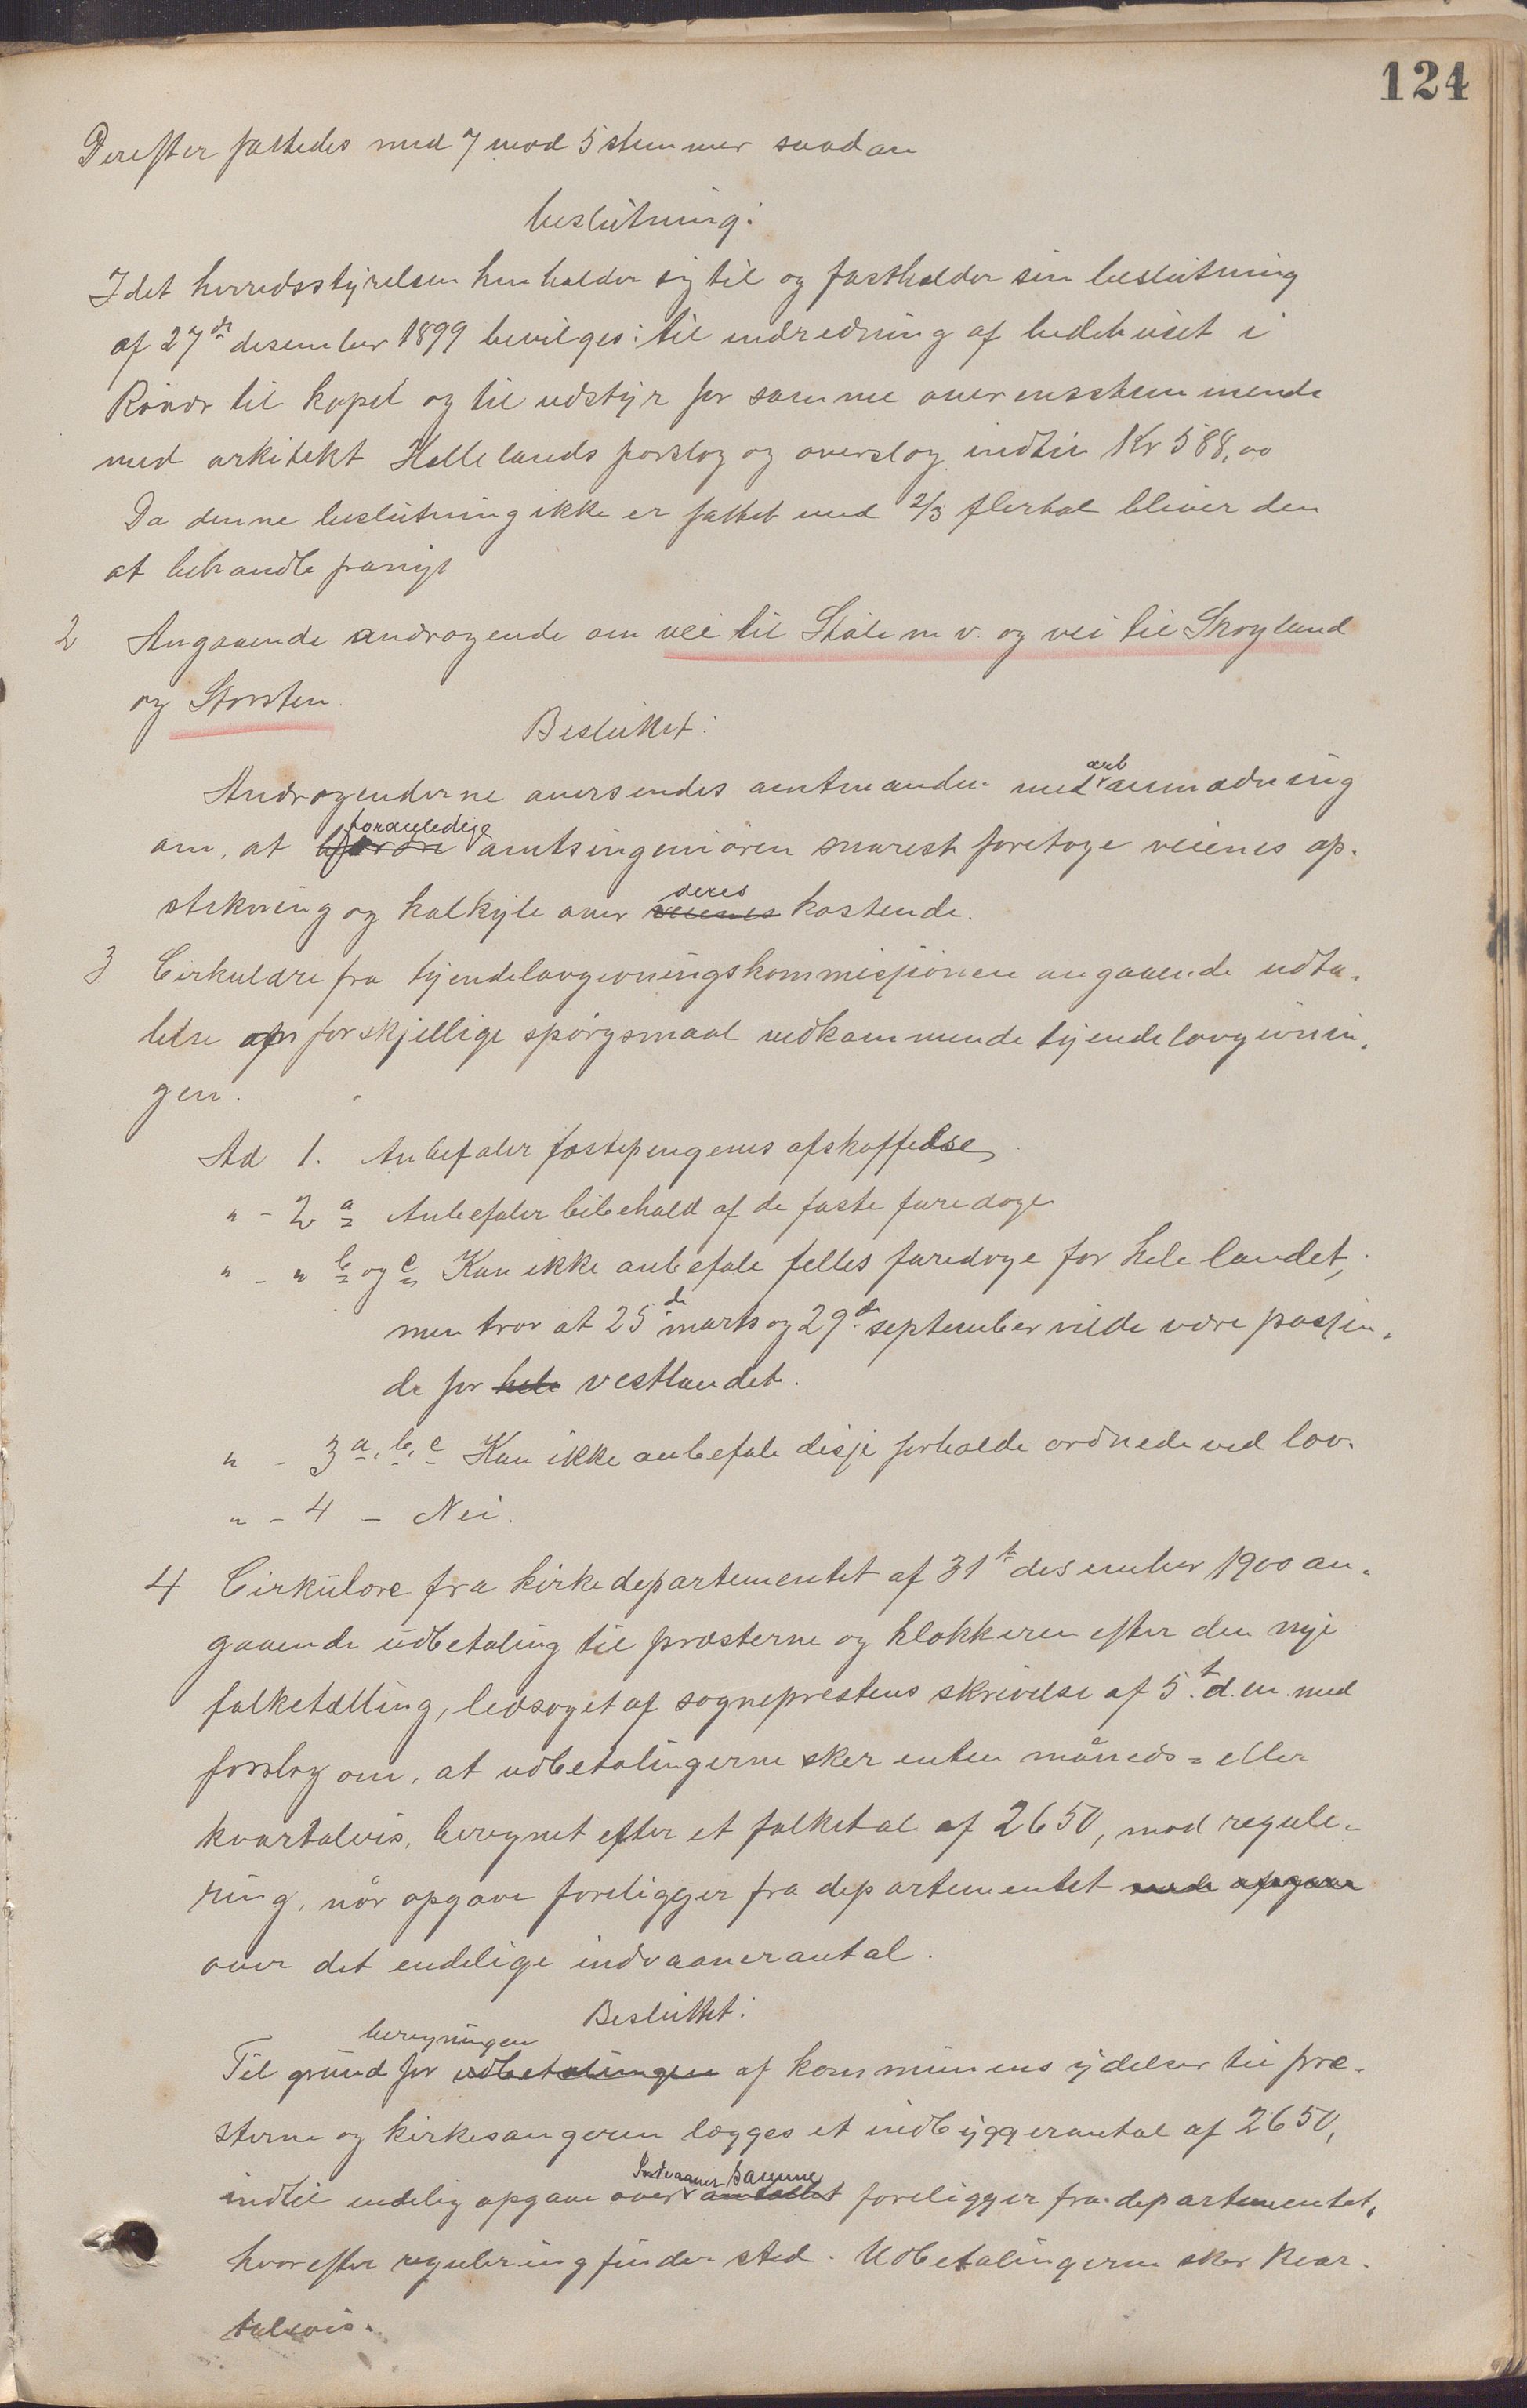 124
Derefter fattedes med 7 mod 5 stemmer saadan
beslutning:
Idet herredsstyrelsen henholder sig til og fastholder sin beslutning
af 27de desember 1899 bevilges: til indredning af bedehuset i
til kapel og til udstyr for samme overensstemmende
med arkitekt Hellelands forslag og overslag indtil Kr 588,00
Da denne beslutning ikke er fattet med 2/3 flertal bliver den
at behandle paanyt
2 Angaaende andragende om vei til Ståle m v. og vei til Skogland
og Storsten.
Besluttet:
Andragenderne oversendes amtmanden med ærb anmodning
om, at foranledige amtsingeniøren snarest foretage veienes op-
stikning og kalkyle over veienes deres kostende.
3 Cirkulære fra tyendelovgivningskommisjonen angaaende udta-
lelse om forskjellige spørgsmaal vedkommende tyendelovgivnin-
gen.
Ad 1. Anbefaler fæstepengenes afskaffelse
" - 2 a Anbefaler bibehold af de faste faredage
" - " b og c Kan ikke anbefale felles faredage for hele landet,
men tror at 25de marts og 29de september vilde være passen-
de for hele vestlandet.
" - 3 a, b, c Kan ikke anbefale disse forholde ordnede ved lov.
" - 4 - Nei.
4 Cirkulære fra kirkedepartementet af 31te desember 1900 an-
gaaende udbetaling til præsterne og klokkeren efter den nye
folketælling, ledsaget af sogneprestens skrivelse af 5te d. m. med
forslag om, at udbetalingerne sker enten måneds= eller
kvartalvis, beregnet efter et folketal af 2650, mod regule-
ring, når opgave foreligger fra departementet
over det endelige indvaanerantal.
Besluttet:
beregningen
Til grund for udbetalingen af kommunens ydelser til præ-
sterne og kirkesangeren lægges et indbyggerantal af 2650,
Indvaaner samme
indtil endelig opgave over antallet foreligger fra departementet,
hvorefter regulering finder sted. Udbetalingerne sker kvar-
talsvis.